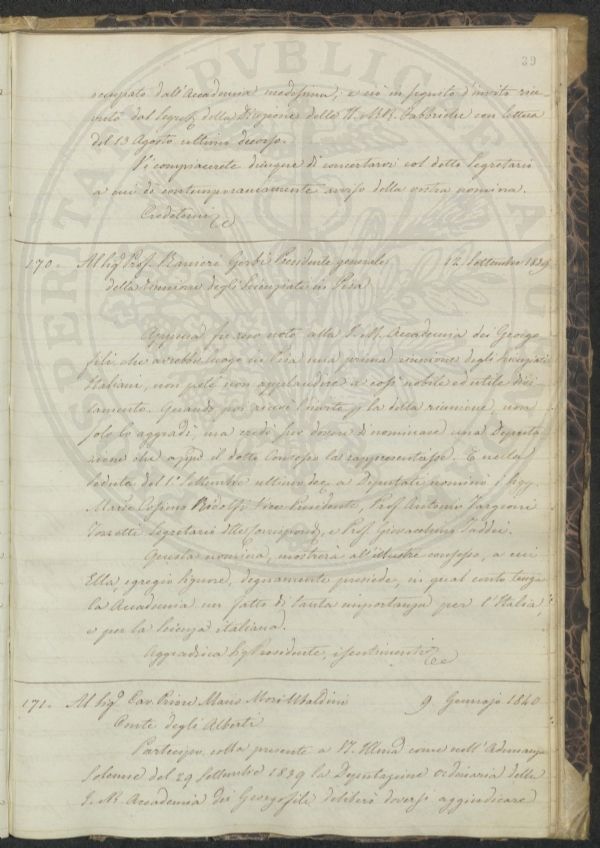 39
occupato dall'Accademia medesima; e ciò in seguito d'invito rice-
vuto dal Segret. della Direzione delle II. e RR. Fabbriche con lettera
del 13 Agosto ultimo decorso.
Vi compiacerete dunque di concertarvi col detto Segretario
a cui dò contemporaneamente avviso della vostra nomina.
Credetemi &c
170. Al Sig. Prof. Ranieri Gerbi Presidente generale 12 Settembre 1839
della riunione degli Scienziati in Pisa
Appena fu reso noto alla I. e R. Accademia dei Georgo-
fili, che avrebbe luogo in Pisa una prima riunione degli scienziati
Italiani, non potè non applaudire a così nobile ed utile divi-
samento. Quando poi riceve l'invito p. la detta riunione, non
solo lo aggradì, ma credè suo dovere di nominare una Deputa-
zione che appo il dotto Consesso la rappresentasse. E nella
seduta del 1° Settembre ultimo dec. a Deputati nominò i Sigg.
March. Cosimo Ridolfi Vice Presidente, Prof. Antonio Targioni
Tozzetti Segretario delle corrispond., e Prof. Giovacchino Taddei.
Questa nomina, mostrerà all'illustre consesso, a cui
Ella, egregio Signore, degnamente presiede, in qual conto tenga
la Accademia un fatto di tanta importanza per l'Italia,
e per la Scienza italiana.
Aggradisca Sig. Presidente, i sentimenti &c
171. Al Sig.° Cav. Priore Mario Mori Ubaldini 9 Gennajo 1840
Conte degli Alberti
Partecipo colla presente a V.S. Illma come nell'Adunanza
Solenne del 29 Settembre 1839 la Deputazione ordinaria della
I. e R. Accademia dei Georgofili deliberò doversi aggiudicare